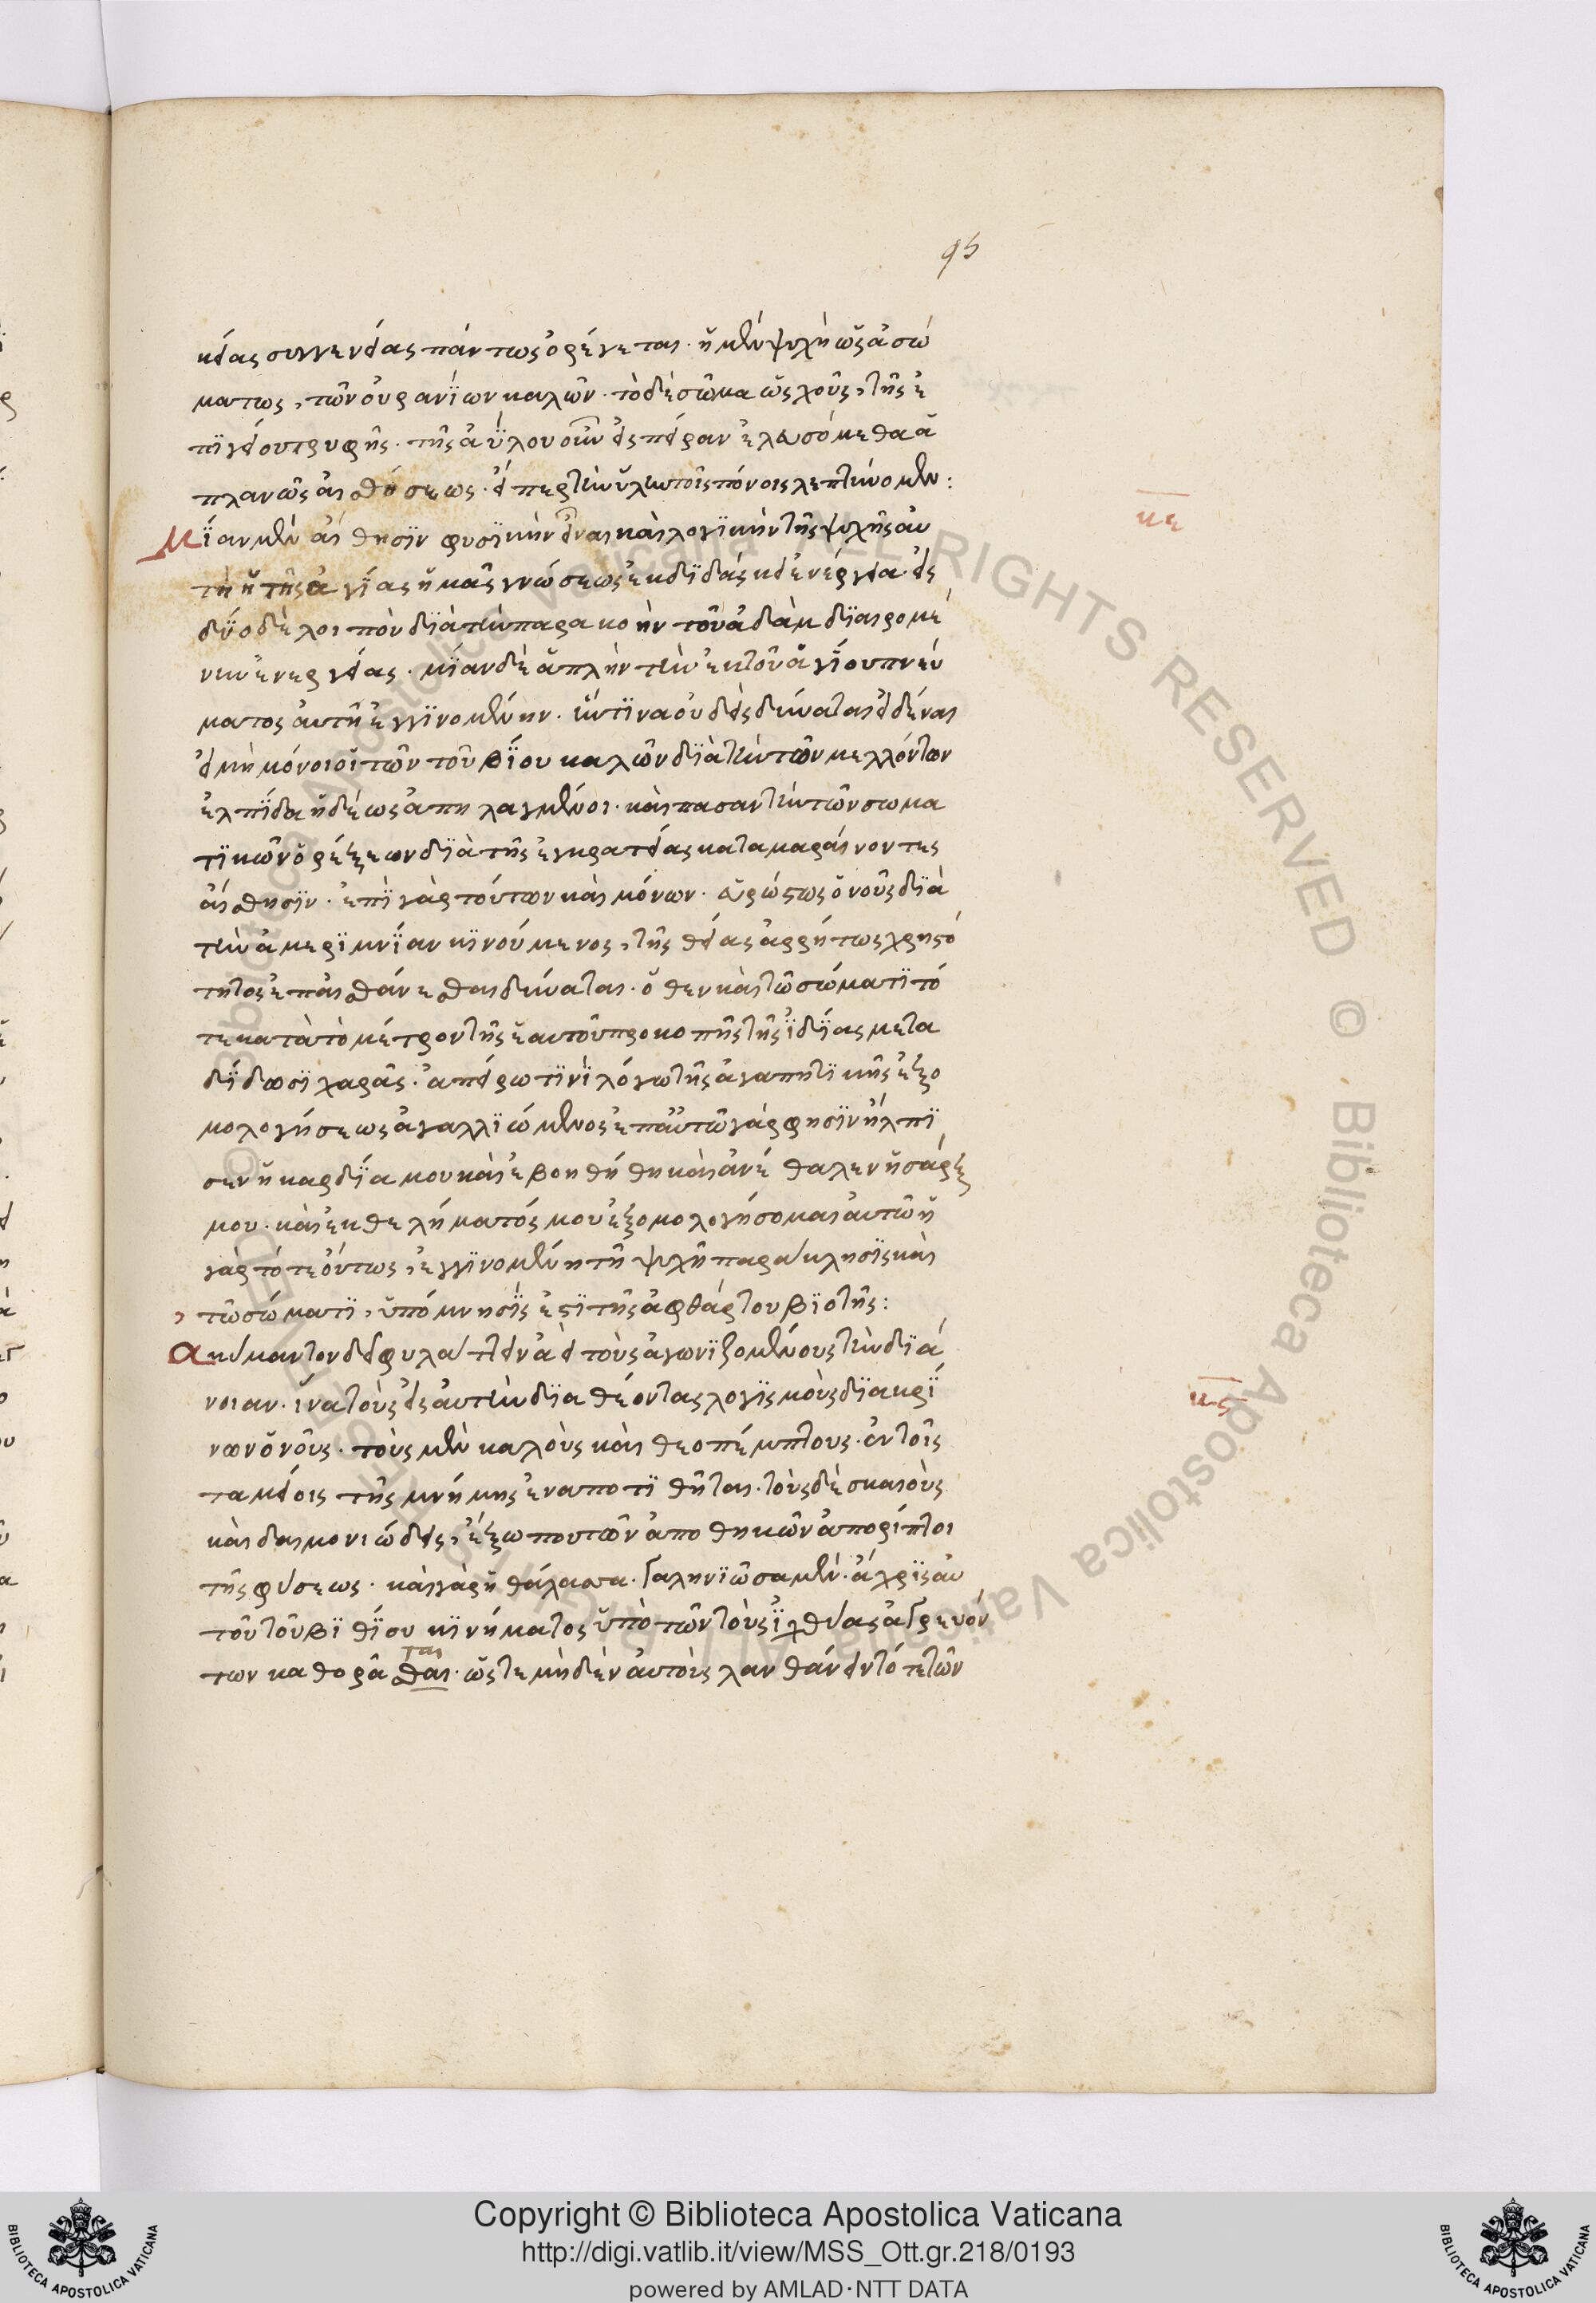 95
κείας συγγενείας πάντως ὀρέγεται· ἡ μὲν ψυχὴ ὡς ἀσώ
ματος, τῶν οὐρανΐων καλῶν· τὸ δὲ σῶμα ὡς χοῦς, τῆς ἐ
πϊγείου τρυφῆς· τῆς ἀΰλου οὖν εἰς πεῖραν ἐλευσόμεθα ἀ
πλανῶς αἰσθήσεως· εἴπερ τὴν ὕλην τοῖς πόνοις λεπτύνομεν:
Μΐαν μὲν αἴσθησϊν φυσϊκὴν εἶναι καὶ λογϊκὴν τῆς ψυχῆς αὐ
τὴ ἡ τῆς ἁγΐας ἡμᾶς γνώσεως ἐκδϊδάσκει ἐνέργεια· εἰς
δύο δὲ λοιπὸν δϊὰ τὴν παρακοὴν τοῦ ἀδὰμ δϊαιρομέ
νην ἐνεργείας· μΐαν δὲ ἁπλὴν τὴν ἐκ τοῦ ἁγΐου πνεύ
ματος αὐτῆ ἐγγϊνομένην· ἥντϊνα οὐδεὶς δύναται εἰδέναι
εἰ μὴ μόνοι οἱ τῶν τοῦ βΐου καλῶν δϊὰ τὴν τῶν μελλόντων
ἐλπΐδα ἡδέως ἀπηλαγμένοι· καὶ πασαν τὴν τῶν σωμα
τϊκῶν ὀρέξεων δϊὰ τῆς ἐγκρατείας καταμαραίνοντες
αἴσθησϊν· ἐπϊ γὰρ τούτων καὶ μόνων· εὐρώστως ὁ νοῦς δϊὰ
τὴν ἀμερϊμνΐαν κϊνούμενος, τῆς θείας ἀρρήτως χρηστό
τητος ἐπαισθάνεσθαι δύναται· ὅθεν καὶ τῶ σώματϊ τό
τε κατὰ τὸ μέτρον τῆς ἑαυτοῦ προκοπῆς τῆς ϊδΐας μετα
δΐδωσϊ χαρᾶς· ἀπείρω τϊνϊ λόγω τῆς ἀγαπητϊκῆς ἐξο
μολογήσεως ἀγαλλϊώμενος ἐπ αὐτῶ γάρ φησϊν ἤλπϊ
σεν ἡ καρδΐα μου καὶ ἐβοηθήθη καὶ ἀνέθαλεν ἡ σάρξ
μου· καὶ ἐκ θελήματός μου ἐξομολογήσομαι αὐτῶ ἡ
γὰρ τότε ὄντως, ἐγγϊνομένη τῆ ψυχῆ παράκλησϊς καὶ
τῶ σώματϊ, ὑπόμνησϊς ἐστϊ τῆς ἀφθάρτου βϊοτῆς:
Ακύμαντον δεῖ φυλάττειν ἀεὶ τοὺς ἀγωνϊζομένους τὴν δϊά
νοιαν· ἵνα τοὺς εἰς αὐτὴν δϊαθέοντας λογϊσμοὺς δϊακρΐ
νων ὁ νοῦς· τοὺς μὲν καλοὺς καὶ θεοπέμπτους· ἐν τοῖς
ταμείοις τῆς μνήμης ἐναποτϊθῆται· τοὺς δὲ σκαιοὺς
καὶ δαιμονιώδεις, ἔξω που τῶν ἀποθηκῶν ἀπορίπτοι
τῆς φύσεως· καὶ γὰρ ἡ θάλασσα· γαληνϊῶσα μὲν· ἄχρϊς αὐ
τοῦ τοῦ βϊθΐου κϊνήματος ὑπὸ τῶν τοὺς ϊχθύας ἀγρευόν
των καθορᾶσθαι· ὥστε μηδὲν αὐτοὺς λανθάνειν τότε τῶν
ται
κε
κς
Copyright © Biblioteca Apostolica Vaticana
http://digi.vatlib.it/view/MSS_Ott.gr.218/0193
powered by AMLAD·NTT DATA
BIBLIOTECA APOSTOLICA VATICANA
BIBLIOTECA APOSTOLICA VATICANA